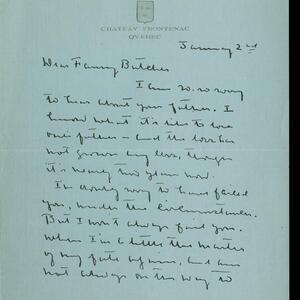 CHATEAU FRONTENAC
QUEBEC
January 2nd
Dear Fanny Butcher
I am so sorry
to hear about your father. I
know what it's like to lose
one's father - and the loss has
not grown any less, though
it's nearly two years now.
I'm doubly sorry to have failed
you, under the circumstances.
But I won't always fail you.
When I'm a little the master
of my fate again, and am
not always on the way to